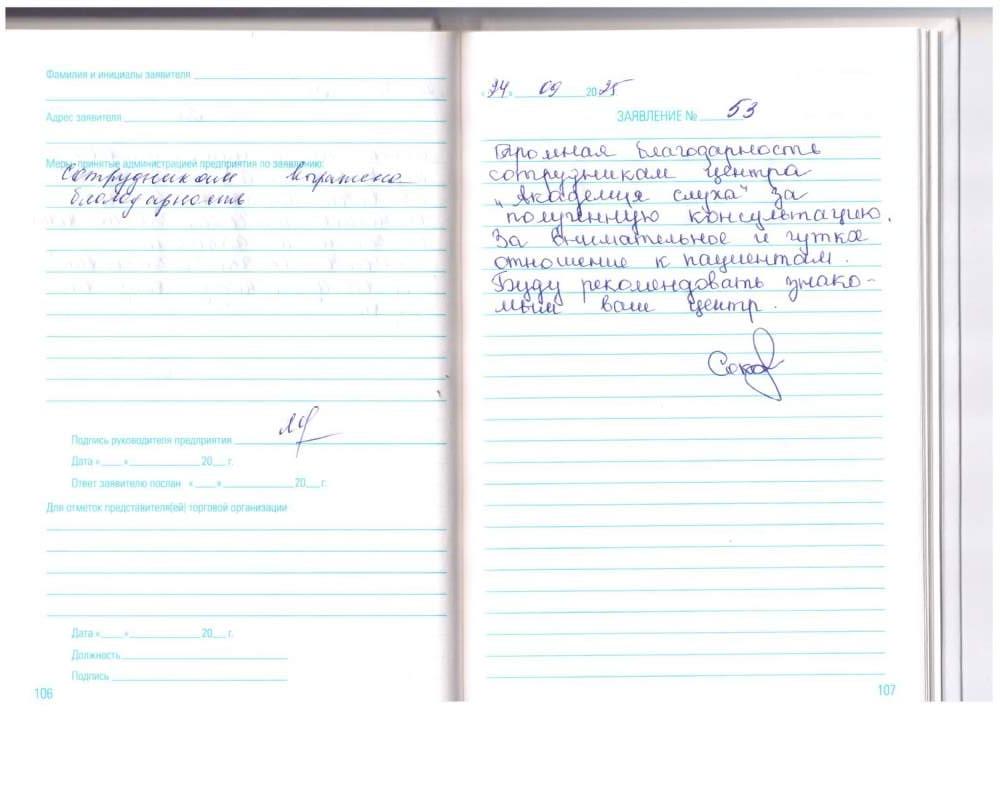 Фамилия и инициалы заявителя
Адрес заявителя
Меры, принятые администрацией предприятия по заявлению:
Сотрудникам выражена
благодарность
Подпись руководителя предприятия
Дата « » 20 г.
Ответ заявителю послан « » 20 г.
Для отметок представителя(ей) торговой организации
Дата « » 20 г.
Должность
Подпись
106
«24» 09 2025
ЗАЯВЛЕНИЕ № 53
Огромная благодарность
сотрудникам центра
"Академия слуха" за
полученную консультацию.
За внимательное и чуткое
отношение к пациентам.
Буду рекомендовать знако-
мым ваш центр.
107